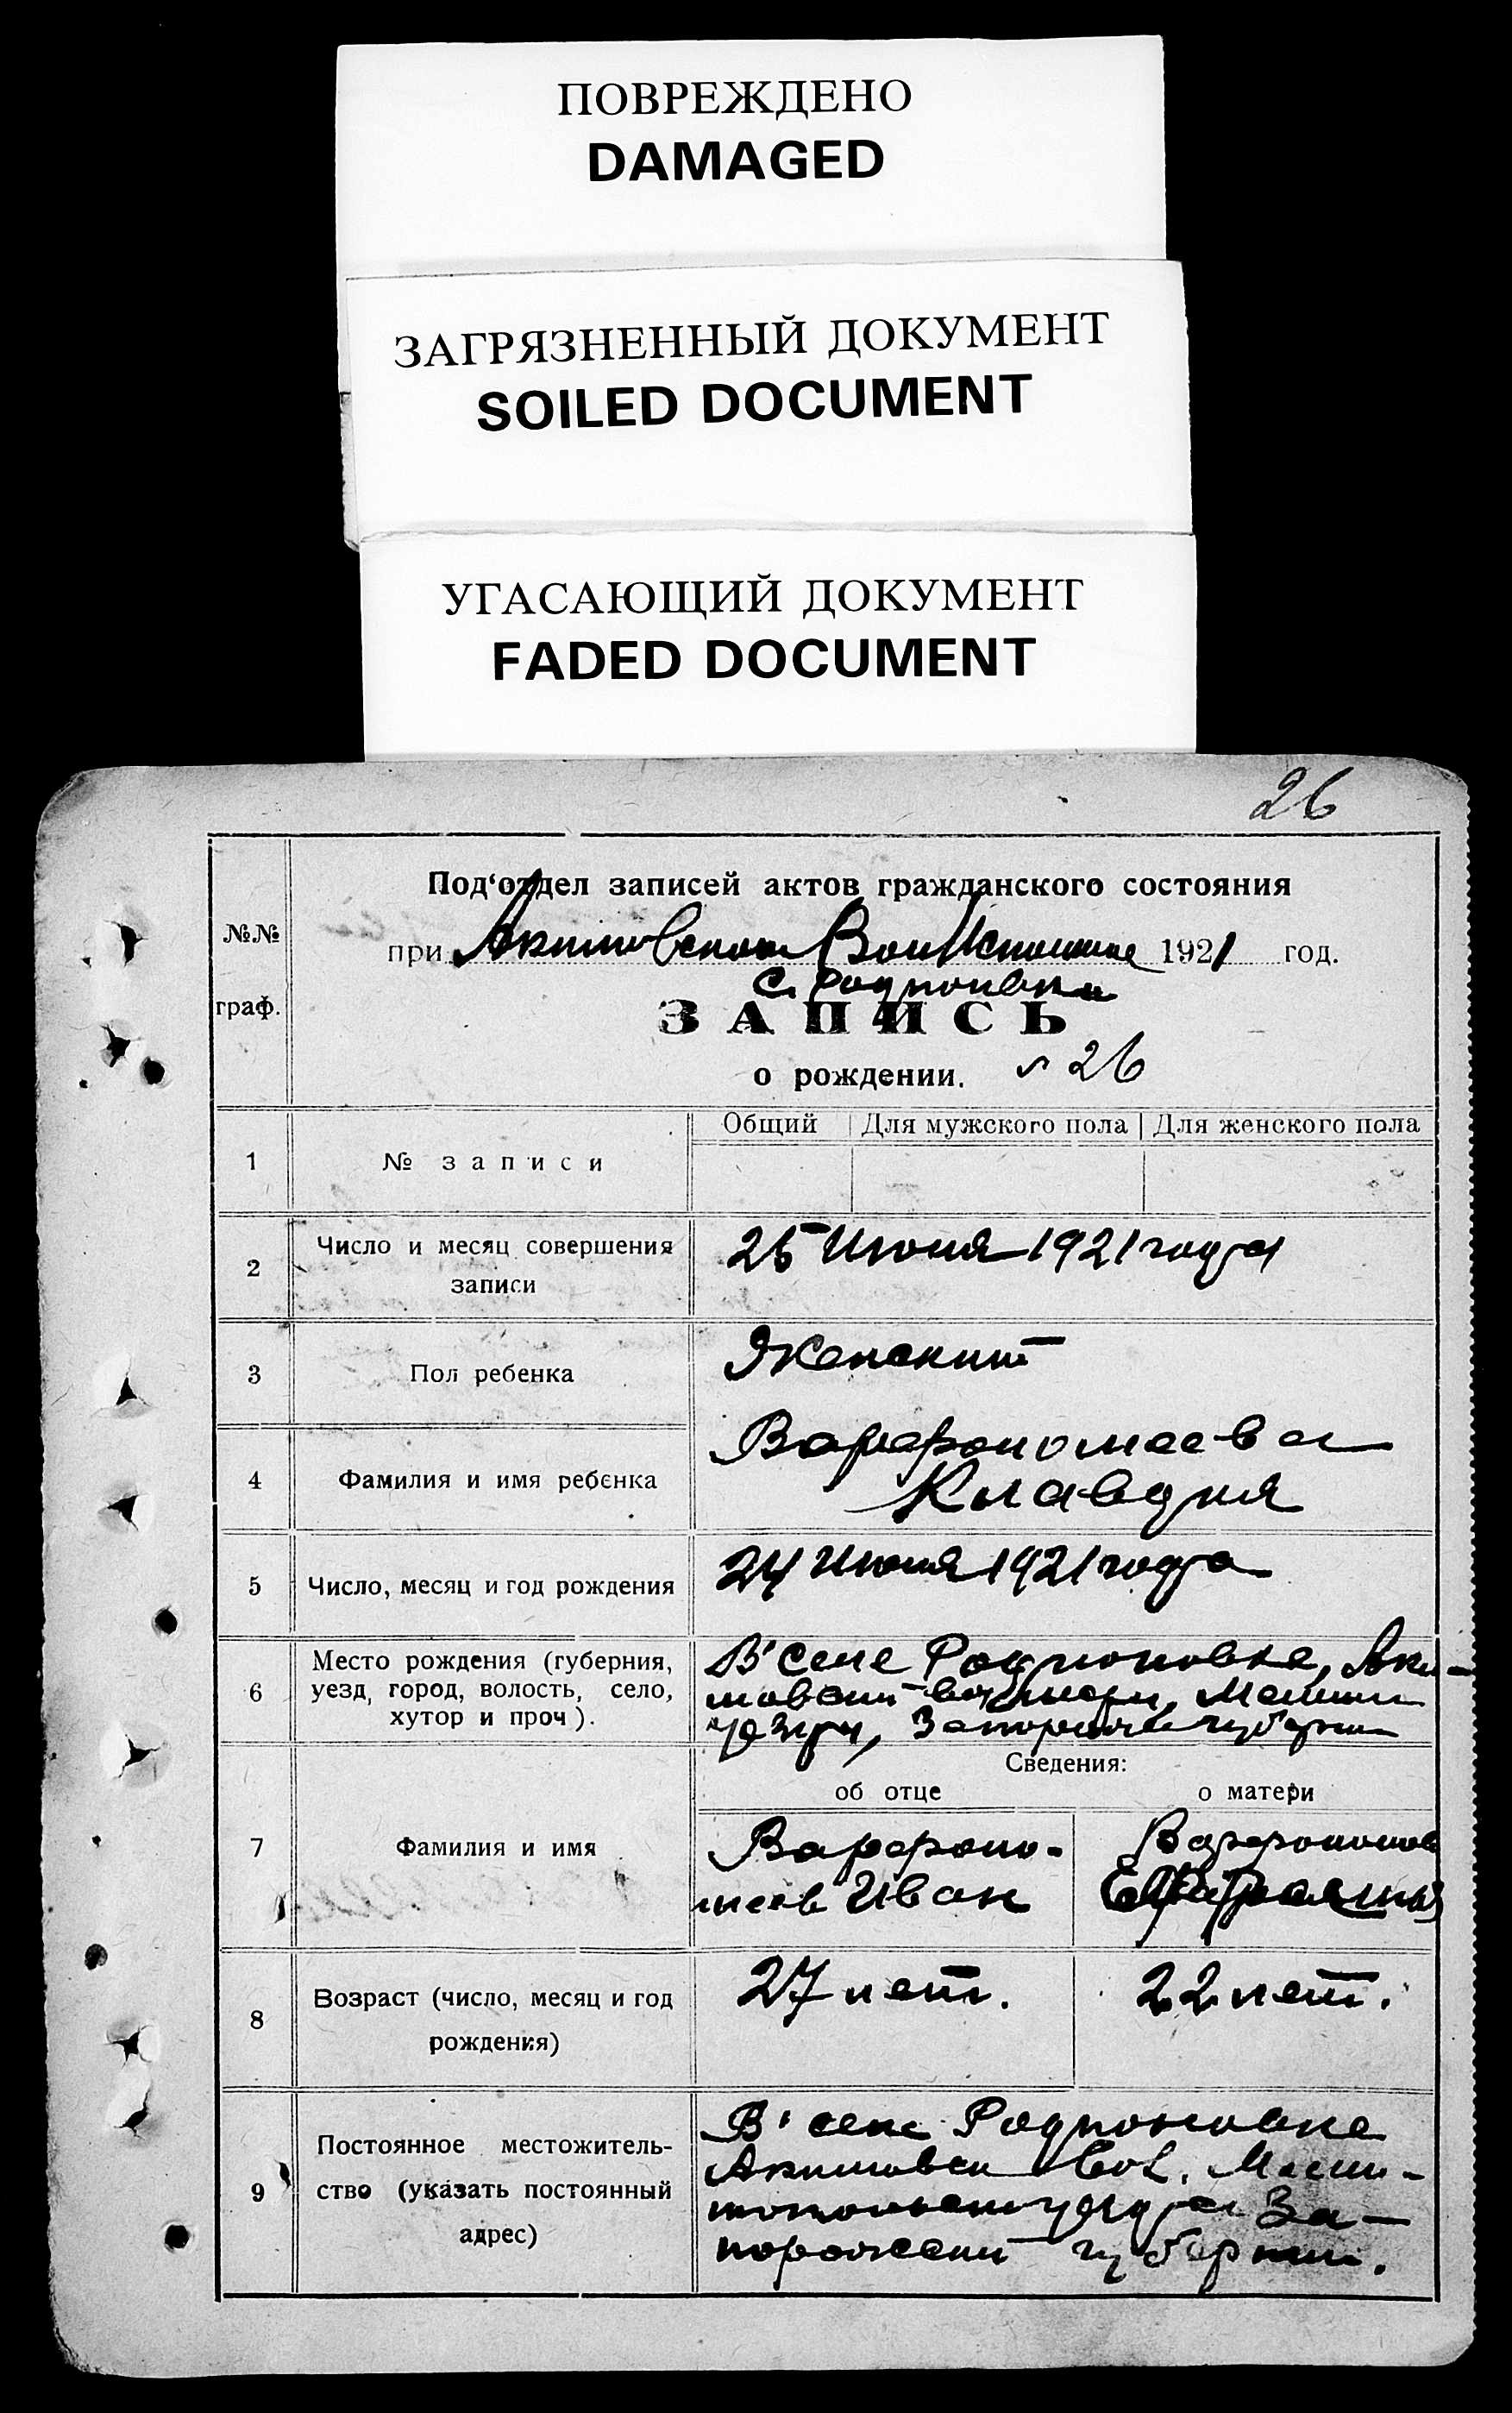 ПОВРЕЖДЕНО
DAMAGED
ЗАГРЯЗНЕННЫЙ ДОКУМЕНТ
SOILED DOCUMENT
УГАСАЮЩИЙ ДОКУМЕНТ
FADED DOCUMENT
26
№№
граф.
Под‘отдел записей актов гражданского состояния
при Акимовском 1921 год.
с. Родионовки
ЗАПИСЬ
о рождении. 26
Общий Для мужского пола Для женского пола
1 № записи
2 Число и месяц совершения
записи
25 Июня 1921 года
3 Пол ребенка
Женский
4 Фамилия и имя ребенка
Варфоломеева
Клавдия
5 Число, месяц и год рождения
24 Июня 1921 года
6 Место рождения (губерния,
уезд, город, волость, село,
хутор и проч).
В' селе Родионовке, Аки-
мовской волости, Мелит
уезда, Запорожс губернии
Сведения:
об отце о матери
7 Фамилия и имя
Варфоло-
меев Иван
Варфоломеев
8 Возраст (число, месяц и год
рождения)
27 лет.
22 лет.
9 Постоянное местожитель-
ство (указать постоянный
адрес)
В' селе Родионовке
Акимовской Вол. Мели-
топольского уезда За-
порожской губернии.